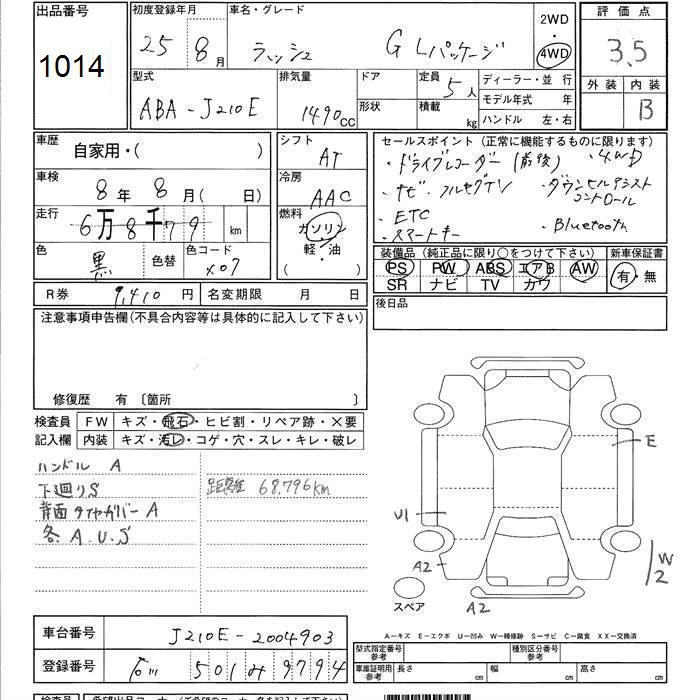 出品番号 1014
初度登録年月 25年 8月
車名・グレード ラッシュ G Lパッケージ
2WD・4WD
評価点 3.5
外装 内装 B
型式 ABA-J210E
排気量 1490cc
ドア
形状
定員 5人
積載 kg
ディーラー・並行
モデル年式 年
ハンドル 左・右
車歴 自家用・( )
シフト AT
車検 8年 8月( 日)
冷房 AAC
走行 6万8千79 km
燃料 ガソリン
軽・油
( )
色 黒 色替 色コード X07
R券 9,410円 名変期限 月 日
セールスポイント (正常に機能するものに限ります)
・ドライブレコーダー(前後) ・4WD
・ナビ・フルセグTV ・ダウンヒルアシストコントロール
・ETC
・スマートキー ・Bluetooth
装備品 (純正品に限り○をつけて下さい) 新車保証書
PS PW ABS エアB AW 有・無
SR ナビ TV カワ
後日品
注意事項申告欄(不具合内容等は具体的に記入して下さい)
修復歴 有 〔箇所 〕
検査員 FW キズ・飛石・ヒビ割・リペア跡・×要
記入欄 内装 キズ・汚レ・コゲ・穴・スレ・キレ・破レ
ハンドル A
下廻りS 距離 68,796km
背面タイヤカバーA
各A.U.S
E
U1
A2
W2
A2
スペア
A-キズ E-エクボ U-凹み W-補修跡 S-サビ C-腐食 XX-交換済
車台番号 J210E-2004903
登録番号 石川 501 み 9794
型式指定番号 参考 種別区分番号 参考
車庫証明用 参考 長さ cm 幅 cm 高さ cm